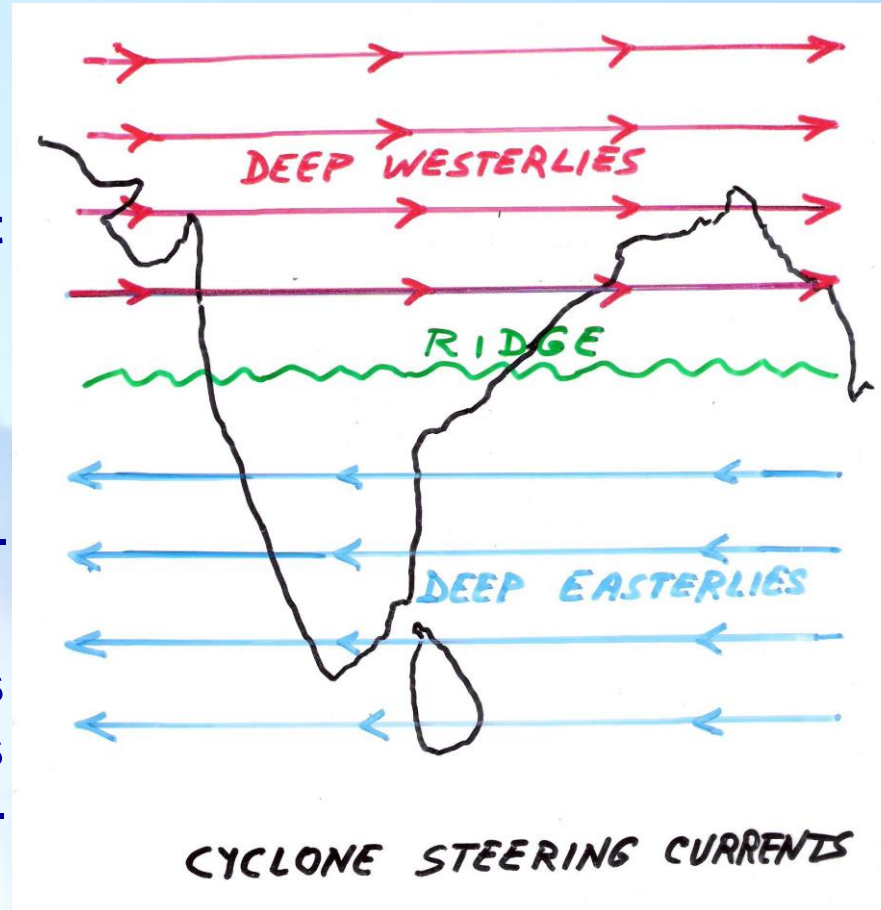 DEEP WESTERLIES
RIDGE
DEEP EASTERLIES
CYCLONE STEERING CURRENTS